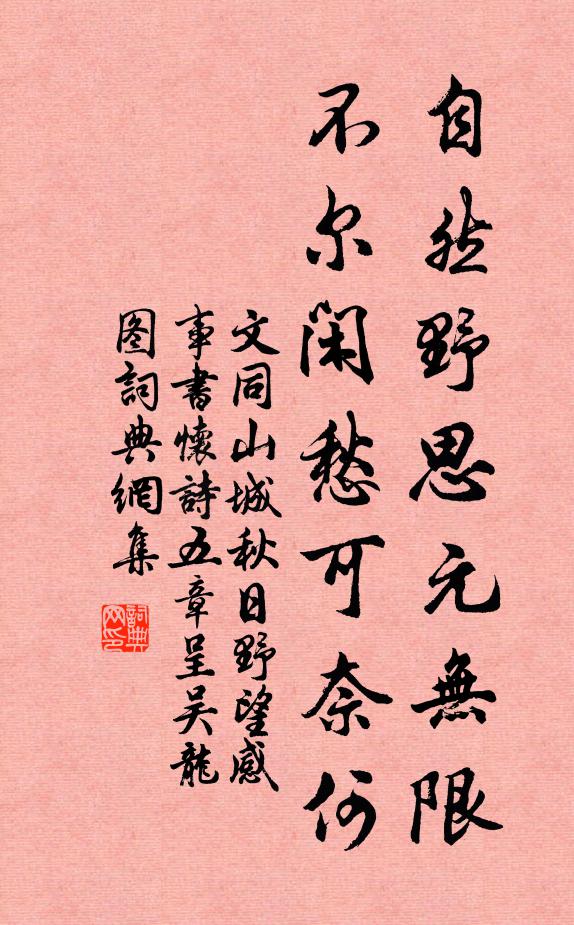 自然野思元無限
不尔閑愁可奈何
文同山城秋日野望感
事書懷詩五章呈吴龍
图詞典網集
詞典
网印